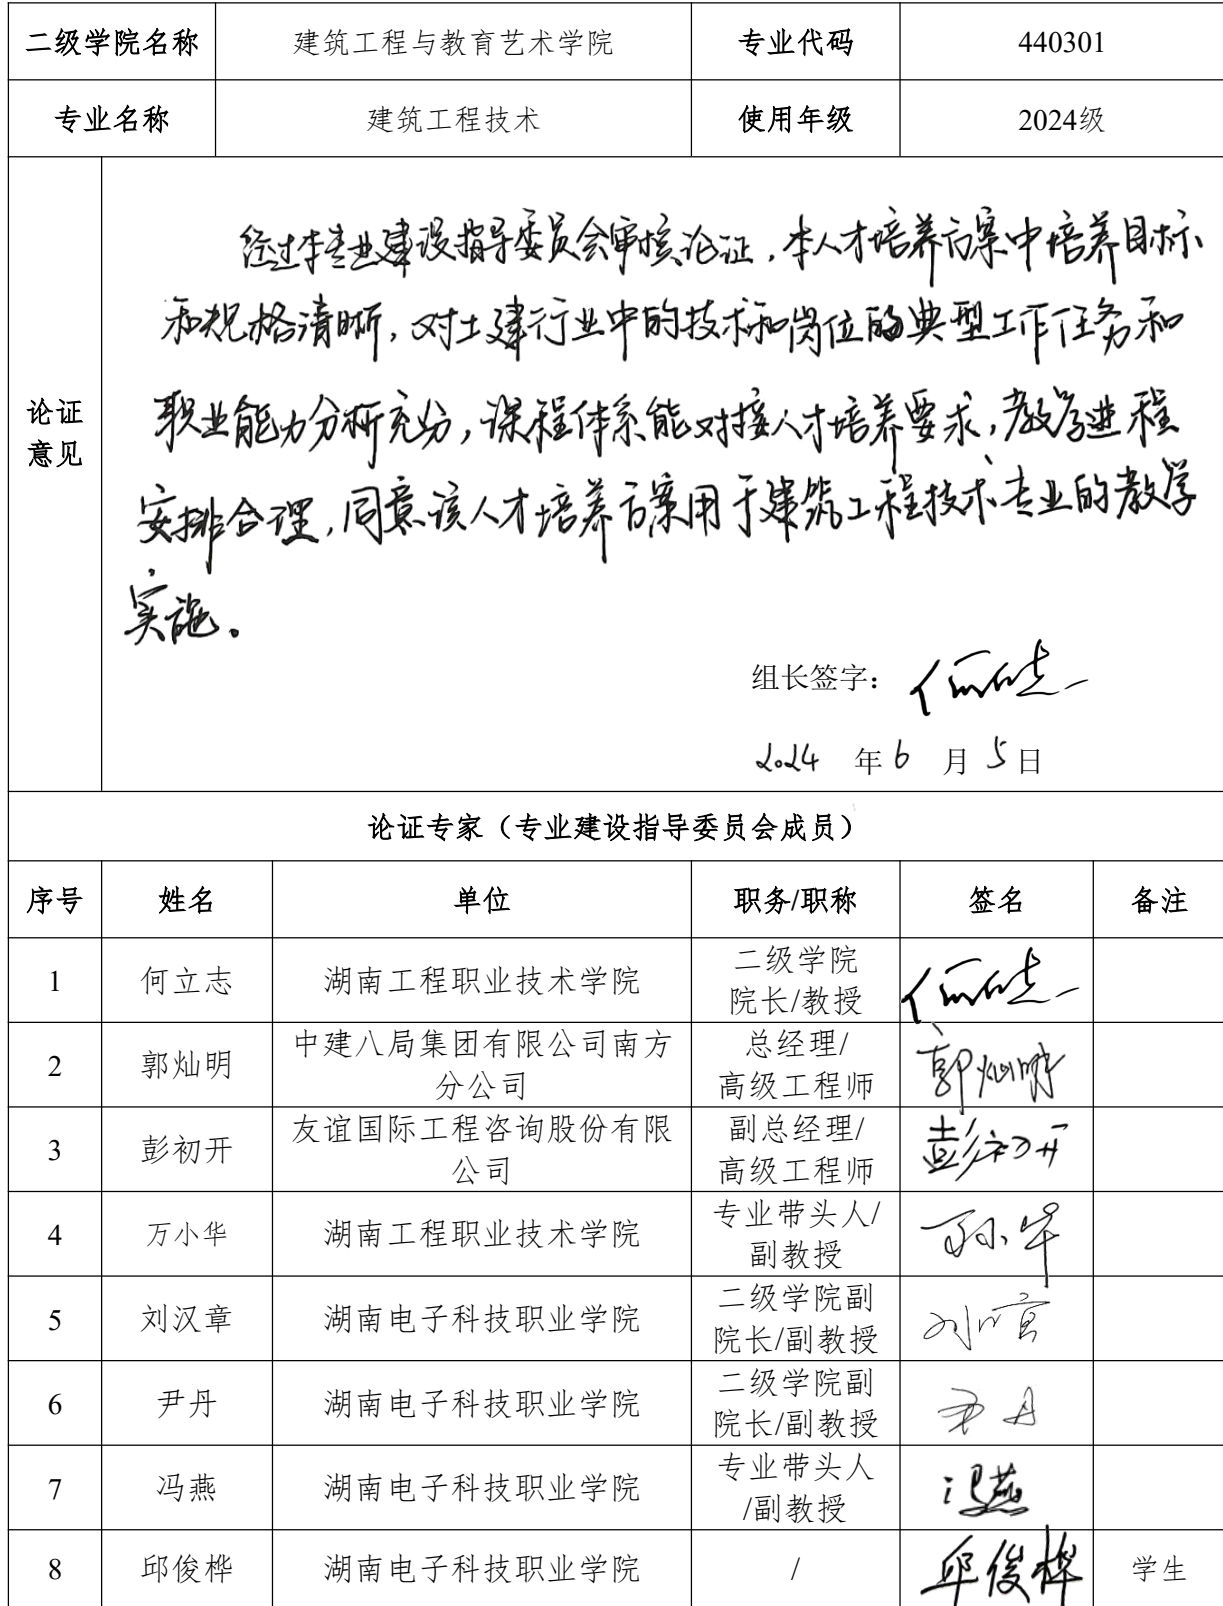 二级学院名称 建筑工程与教育艺术学院 专业代码 440301
专业名称 建筑工程技术 使用年级 2024级
论证意见
经过本专业建设指导委员会审核论证,本人才培养方案中培养目标
和规格清晰,对土建行业中的技术和岗位的典型工作任务和
职业能力分析充分,课程体系能对接人才培养要求,教学进程
安排合理,同意该人才培养方案用于建筑工程技术专业的教学
实施。
组长签字: 何立志
2024 年 6 月 5 日
论证专家(专业建设指导委员会成员)
序号 姓名 单位 职务/职称 签名 备注
1 何立志 湖南工程职业技术学院 二级学院院长/教授 何立志
2 郭灿明 中建八局集团有限公司南方分公司 总经理/高级工程师 郭灿明
3 彭初开 友谊国际工程咨询股份有限公司 副总经理/高级工程师 彭初开
4 万小华 湖南工程职业技术学院 专业带头人/副教授 万小华
5 刘汉章 湖南电子科技职业学院 二级学院副院长/副教授 刘汉章
6 尹丹 湖南电子科技职业学院 二级学院副院长/副教授 尹丹
7 冯燕 湖南电子科技职业学院 专业带头人/副教授 冯燕
8 邱俊桦 湖南电子科技职业学院 / 邱俊桦 学生